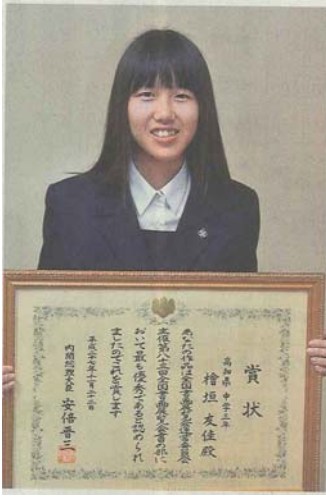 賞状
高知県 中学三年
檜垣 友佳殿
あなたの作品は全国書画展覧会
主催第八十三回全国書画展覧会書の部に
おいて最も優秀であると認められ
ましたのでこれを賞します
平成二十七年十一月二十二日
内閣総理大臣 安倍晋三